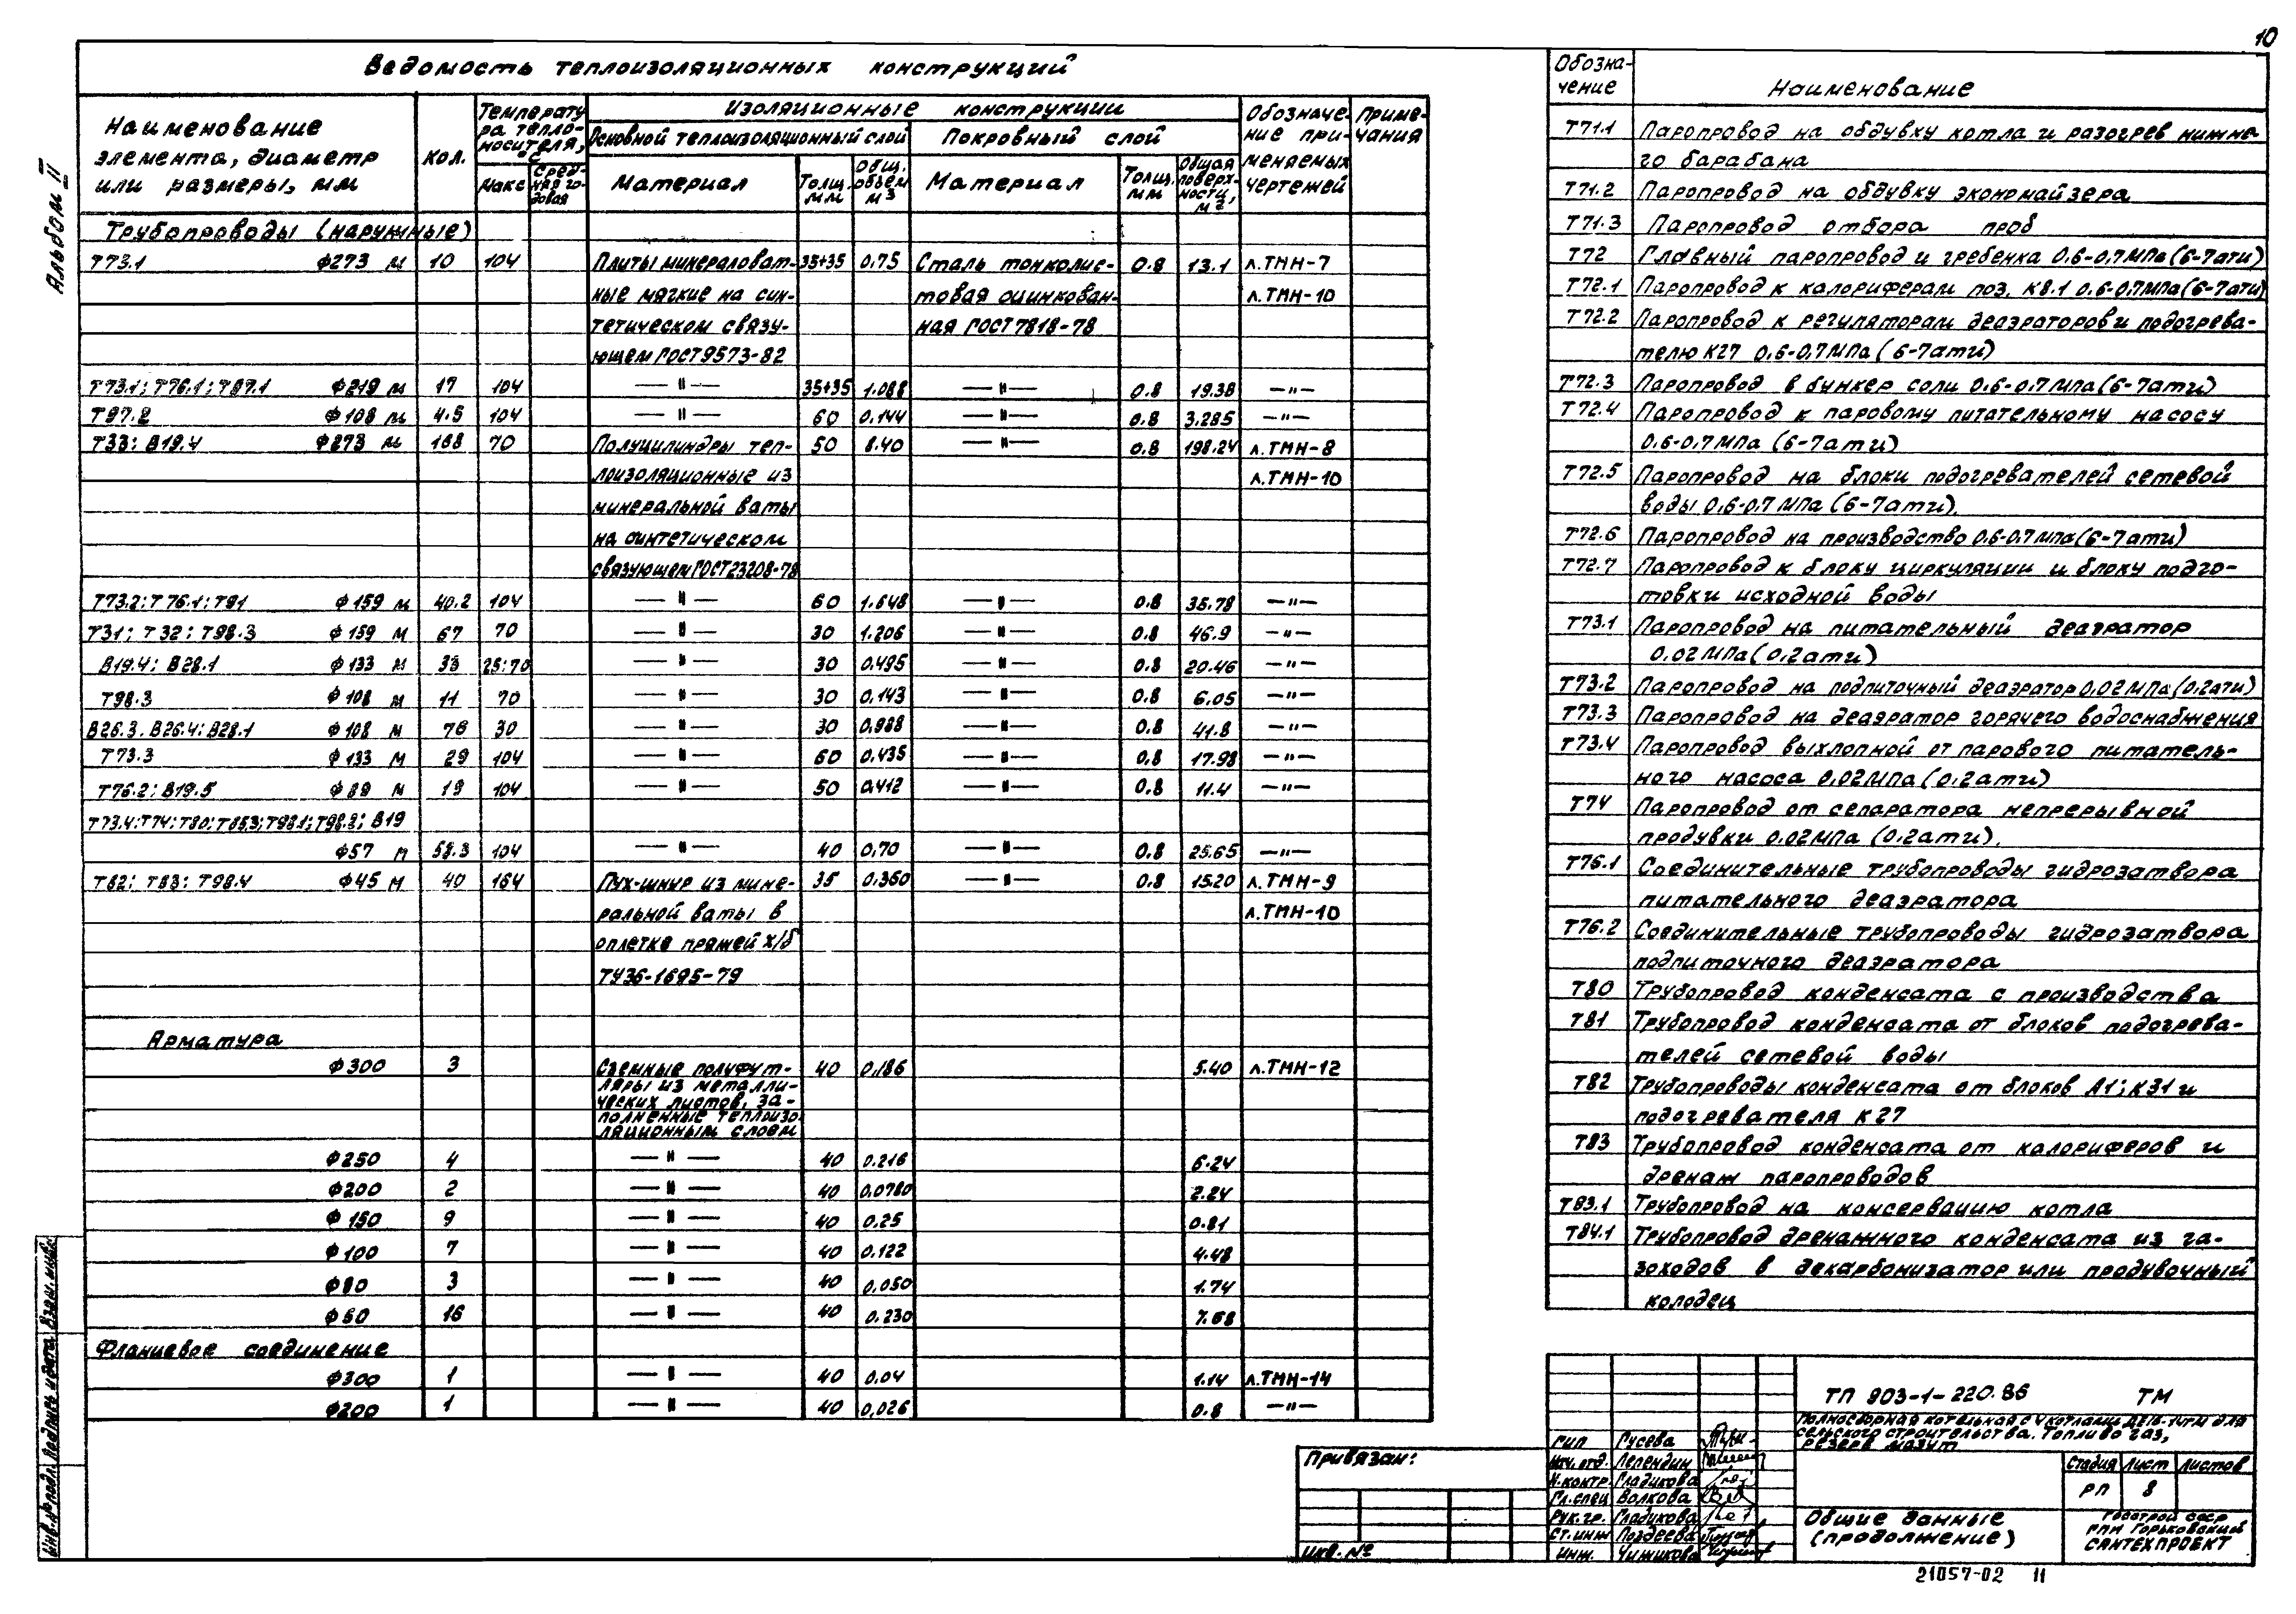 10
Альбом II
Ведомость теплоизоляционных конструкций
Наименование элемента, диаметр или размеры, мм
Кол.
Температура теплоносителя, °С
Макс
Средняя годовая
Изоляционные конструкции
Основной теплоизоляционный слой
Покровный слой
Материал
Толщ. мм
Общ. объем м3
Материал
Толщ. мм
Общая поверхность, м2
Обозначение применяемых чертежей
Примечания
Трубопроводы (наружные)
Т73.1 ф273 м 10 104 Плиты минераловат- 35+35 0.75 Сталь тонколис- 0.8 13.1 л.ТМН-7
ные мягкие на син- товая оцинкован- л.ТМН-10
тетическом связу- ная ГОСТ 7818-78
ющем ГОСТ 9573-82
Т73.1; Т76.1; Т97.1 ф219 м 17 104 —"— 35+35 1.088 —"— 0.8 19.38 —"—
Т97.2 ф108 м 4.5 104 —"— 60 0.144 —"— 0.8 3.285 —"—
Т33; В19.4 ф273 м 168 70 Полуцилиндры теп- 50 8.40 —"— 0.8 198.24 л.ТМН-8
лоизоляционные из л.ТМН-10
минеральной ваты
на синтетическом
связующем ГОСТ 23208-78
Т73.2; Т76.1; Т91 ф159 м 40.2 104 —"— 60 1.648 —"— 0.8 35.78 —"—
Т31; Т32; Т98.3 ф159 м 67 70 —"— 30 1.206 —"— 0.8 46.9 —"—
В19.4; В28.1 ф133 м 33 25;70 —"— 30 0.495 —"— 0.8 20.46 —"—
Т98.3 ф108 м 11 70 —"— 30 0.143 —"— 0.8 6.05 —"—
В26.3. В26.4; В28.1 ф108 м 76 30 —"— 30 0.988 —"— 0.8 41.8 —"—
Т73.3 ф133 м 29 104 —"— 60 0.435 —"— 0.8 17.98 —"—
Т76.2; В19.5 ф89 м 19 104 —"— 50 0.412 —"— 0.8 11.4 —"—
Т73.4; Т74; Т80; Т85.3; Т98.1; Т98.2; В19
ф57 м 58.3 104 —"— 40 0.70 —"— 0.8 25.65 —"—
Т82; Т83; Т98.4 ф45 м 40 164 Пух-шнур из мине- 35 0.360 —"— 0.8 15.20 л.ТМН-9
ральной ваты в л.ТМН-10
оплетке пряжей х/б
ТУ36-1695-79
Арматура
ф300 3 Съемные полуфут- 40 0.186 5.40 л.ТМН-12
ляры из металли-
ческих листов, за-
полненные теплоизо
ляционным слоем
ф250 4 —"— 40 0.216 6.24
ф200 2 —"— 40 0.0780 2.24
ф150 9 —"— 40 0.25 0.81
ф100 7 —"— 40 0.122 4.48
ф80 3 —"— 40 0.050 1.74
ф50 16 —"— 40 0.230 7.68
Фланцевое соединение
ф300 1 —"— 40 0.04 1.14 л.ТМН-14
ф200 1 —"— 40 0.026 0.8 —"—
Обозначение
Наименование
Т71.1 Паропровод на обдувку котла и разогрев нижне-
го барабана
Т71.2 Паропровод на обдувку экономайзера
Т71.3 Паропровод отбора проб
Т72 Главный паропровод и гребенка 0.6-0.7МПа (6-7ати)
Т72.1 Паропровод к калориферам поз. К8.1 0.6-0.7МПа (6-7ати)
Т72.2 Паропровод к регуляторам деаэраторов и подогрева-
телю К27 0.6-0.7МПа (6-7ати)
Т72.3 Паропровод в бункер соли 0.6-0.7МПа (6-7ати)
Т72.4 Паропровод к паровому питательному насосу
0.6-0.7МПа (6-7ати)
Т72.5 Паропровод на блоки подогревателей сетевой
воды 0.6-0.7МПа (6-7ати).
Т72.6 Паропровод на производство 0.6-0.7МПа (6-7ати)
Т72.7 Паропровод к блоку циркуляции и блоку подго-
товки исходной воды
Т73.1 Паропровод на питательный деаэратор
0.02МПа (0.2ати)
Т73.2 Паропровод на подпиточный деаэратор 0.02МПа (0.2ати)
Т73.3 Паропровод на деаэратор горячего водоснабжения
Т73.4 Паропровод выхлопной от парового питатель-
ного насоса 0.02МПа (0.2ати)
Т74 Паропровод от сепаратора непрерывной
продувки 0.02МПа (0.2ати).
Т76.1 Соединительные трубопроводы гидрозатвора
питательного деаэратора
Т76.2 Соединительные трубопроводы гидрозатвора
подпиточного деаэратора
Т80 Трубопровод конденсата с производства
Т81 Трубопровод конденсата от блоков подогрева-
телей сетевой воды
Т82 Трубопроводы конденсата от блоков А1; К31 и
подогревателя К27
Т83 Трубопровод конденсата от калориферов и
дренаж паропроводов
Т83.1 Трубопровод на консервацию котла
Т84.1 Трубопровод дренажного конденсата из га-
зоходов в декарбонизатор или продувочный
колодец
Привязан:
Инв. №
ТП 903-1-220.86 ТМ
Полносборная котельная с 4 котлами ДЕ16-14ГМ для
сельского строительства. Топливо газ,
резерв мазут
ГИП Гусева
Нач. отд. Лепендин
Н. контр. Гладикова
Гл. спец Волкова
Рук. гр. Гладикова
Ст. инж Поздеева
Инж. Чижикова
Стадия Лист Листов
РП 8
Общие данные
(продолжение)
Госстрой СССР
ГПИ Горьковский
САНТЕХПРОЕКТ
21057-02 11
Инв. № подл. Подпись и дата Взам. инв. №